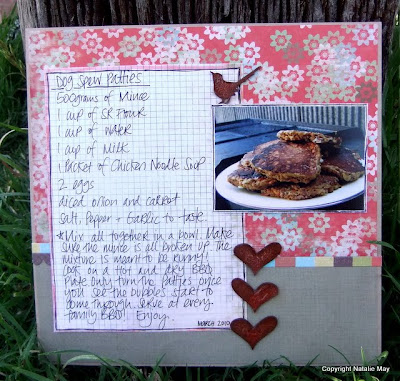 Dog Spew Patties
500grams of Mince
1 cup of SR Flour
1 cup of water
1 cup of Milk
1 Packet of Chicken Noodle Soup
2 eggs
diced onion and carrot
Salt, Pepper + Garlic to taste.
*Mix all together in a bowl. Make
sure the mince is all broken up. The
mixture is meant to be runny!
Cook on a Hot and dry BBQ
Plate only turn the patties once
you see the bubbles start to
come through. Serve at every
family BBQ!! Enjoy..
MARCH 2010
Copyright Natalie May